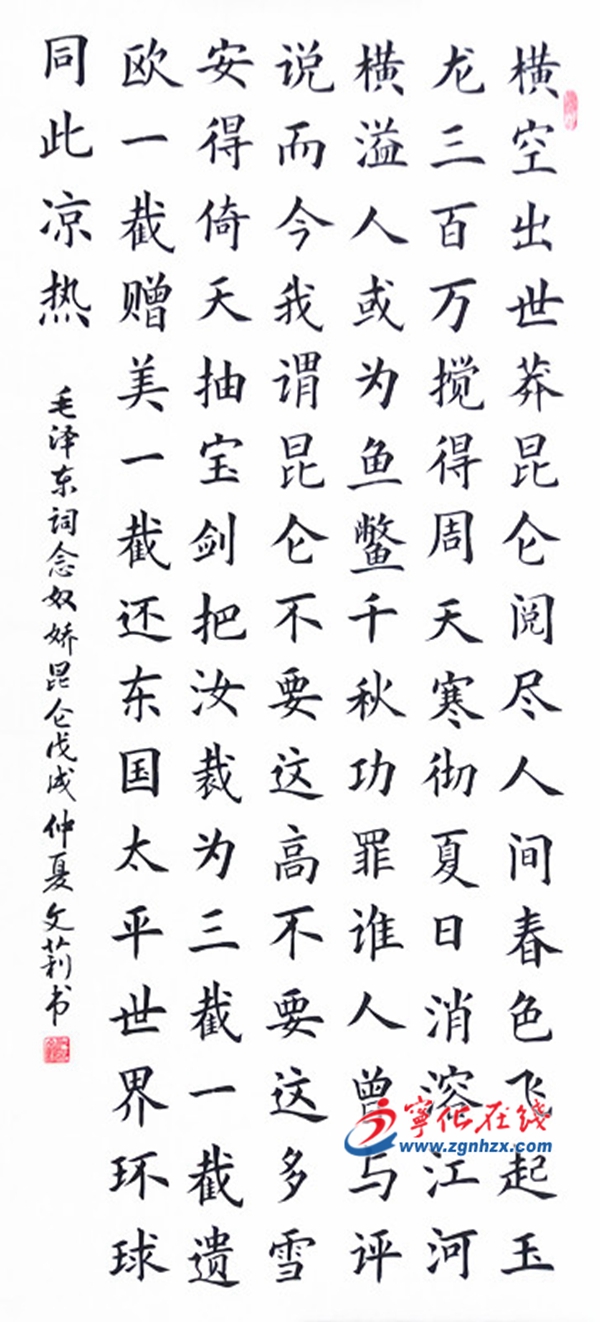 横空出世莽昆仑阅尽人间春色飞起玉
龙三百万搅得周天寒彻夏日消溶江河
横溢人或为鱼鳖千秋功罪谁人曾与评
说而今我谓昆仑不要这高不要这多雪
安得倚天抽宝剑把汝裁为三截一截遗
欧一截赠美一截还东国太平世界环球
同此凉热
毛泽东词念奴娇昆仑戊戌仲夏文莉书
宁化在线
www.zgnhzx.com